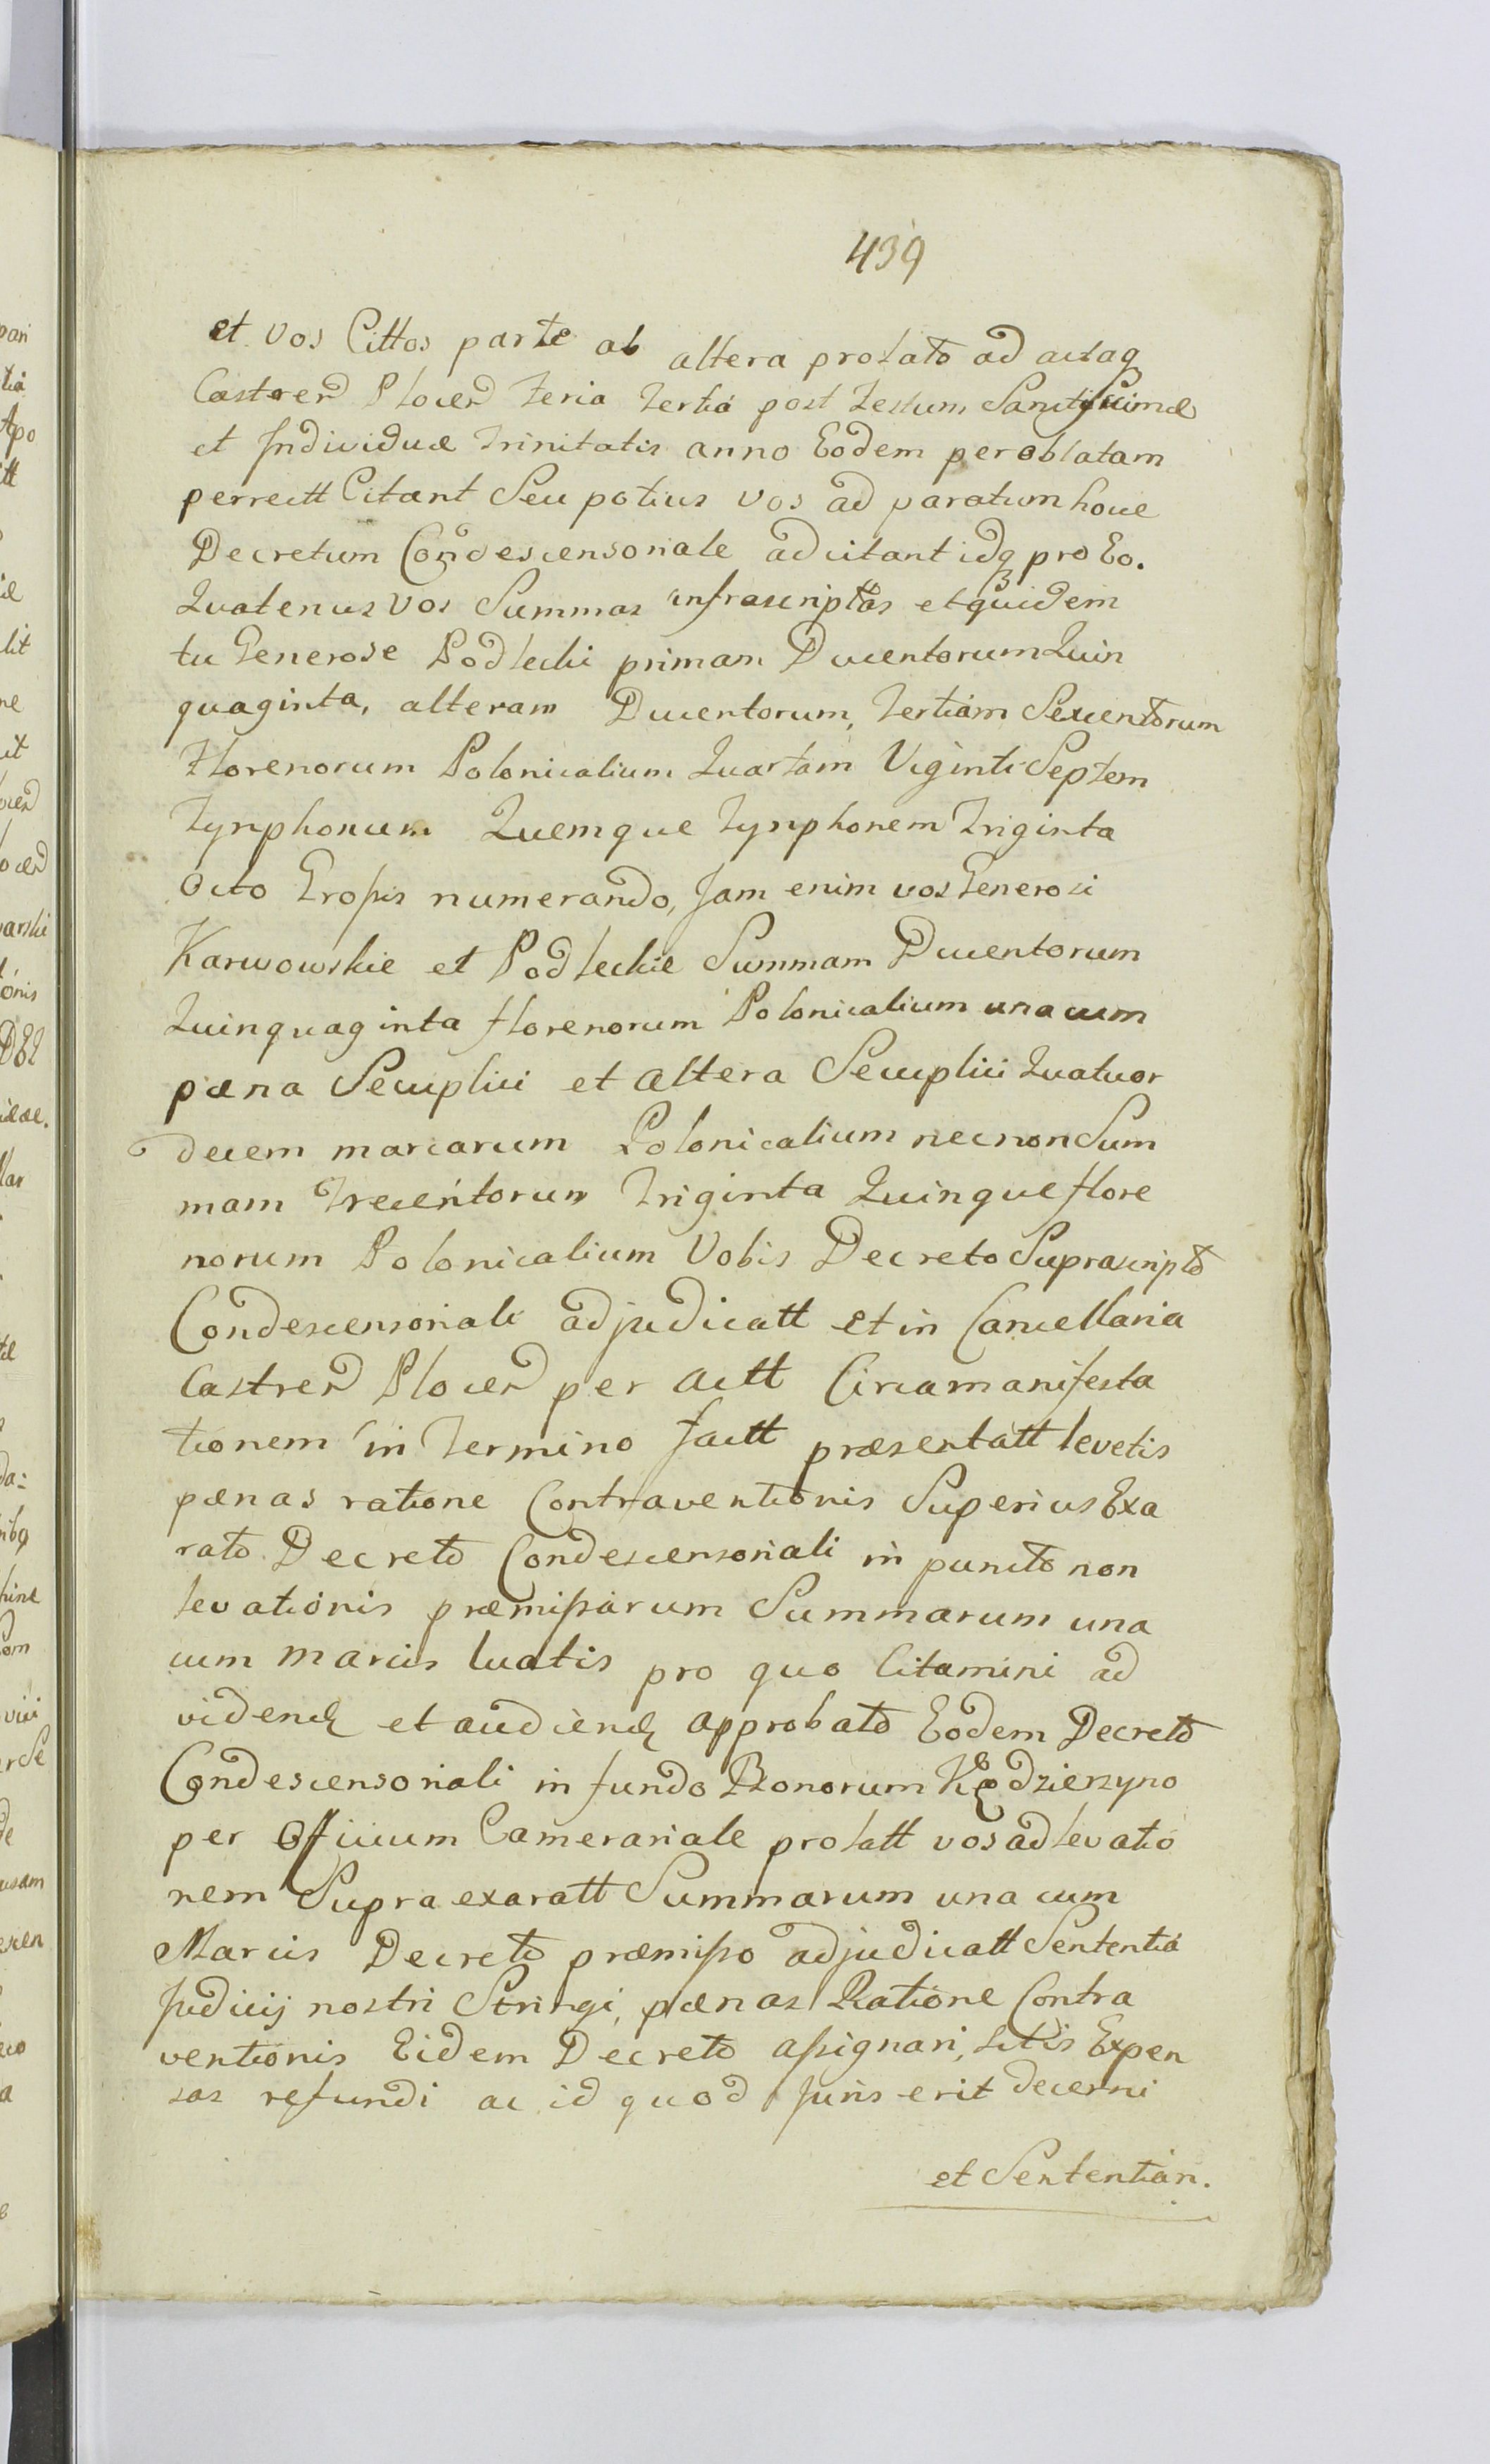 439
et vos Cittos parte ab altera prolato ad actaq
Castren Plocen Feria Tertia post Festum Sanctissimæ
et Individuæ Trinitatis anno Eodem per oblatam
perrectt Citant Seu potius vos ad paratum hocce
Decretum Condescensoriale adcitant idq pro Eo.
Quatenus vos Summas infrascriptas et quidem
tu Generose Podlecki primam Ducentorum Quin
quaginta, alteram Ducentorum, Tertiam Sexcentorum
Florenorum Polonicalium Quartam Viginti Septem
Tynphonum Quemque Tynphonem Triginta
Octo Grossis numerando, Jam enim vos Generosi
Karwowskie et Podleckie Summam Ducentorum
Quinquaginta florenorum Polonicalium una cum
pæna Seccuplici et altera Seccuplici Quatuor
decem marcarum Polonicalium necnon Sum
mam Trecentorum Triginta Quinque flore
norum Polonicalium Vobis Decreto Suprascripto
Condescensoriali adjudicatt et in Cancellaria
Castren Plocen per actt Circa manifesta
tionem in Termino factt præsentatt levetis
pænas ratione Contraventionis Superius Exa
rato Decreto Condescensoriali in puncto non
levationis præmissarum Summarum una
cum marcis luatis pro quo Citamini ad
vidend et audiend approbato Eodem Decreto
Condescensoriali in fundo Bonorum Kędzierzyno
per Officium Camerariale prolatt vos ad levatio
nem Supra exaratt Summarum una cum
Marcis Decreto præmisso adjudicatt Sententia
Judicij nostri Stringi, pænas Ratione Contra
ventionis Eidem Decreto assignari, Litis Expen
sas refundi ac id quod Juris erit decerni
et Sententian.